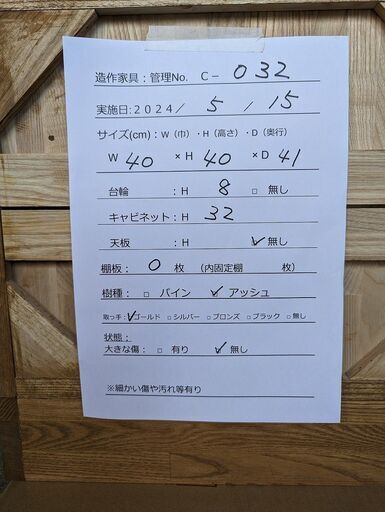 造作家具：管理No. C－ 032
実施日:２０２４／ 5 ／ 15
サイズ(cm)：W（巾）・H（高さ）・D（奥行）
W 40 ×H 40 ×D 41
台輪 ：H 8 □ 無し
キャビネット：H 32
天板 ：H ☑ 無し
棚板： 0 枚 （内固定棚 枚）
樹種： □ パイン ☑ アッシュ
取っ手：☑ゴールド □シルバー □ブロンズ □ブラック □無し
状態：
大きな傷： □ 有り ☑ 無し
※細かい傷や汚れ等有り